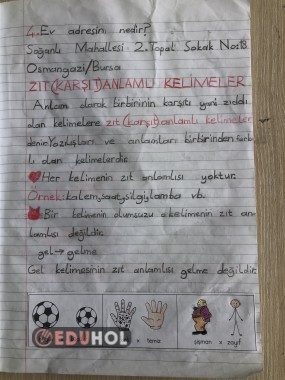 4. Ev adresini nedir?
Soğanlı Mahallesi 2. Topal Sokak No:18
Osmangazi/Bursa
ZIT(KARŞIT)ANLAMLI KELİMELER
Anlam olarak birbirinin karşıtı yani zıddı
olan kelimelere zıt(karşıt)anlamlı kelimeler
denir. Yazılışları ve anlamları birbirinden fark
lı olan kelimelerdir.
Her kelimenin zıt anlamlısı yoktur.
Örnek: kalem, saat, silgi, lamba vb.
Bir kelimenin olumsuzu o kelimenin zıt an-
lamlısı değildir.
gel→gelme
Gel kelimesinin zıt anlamlısı gelme değildir.
EDUHOL
x temiz
şişman x zayıf